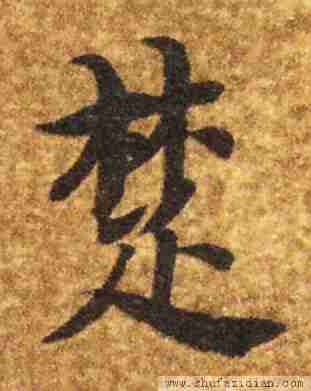 楚
www.shufazidian.com